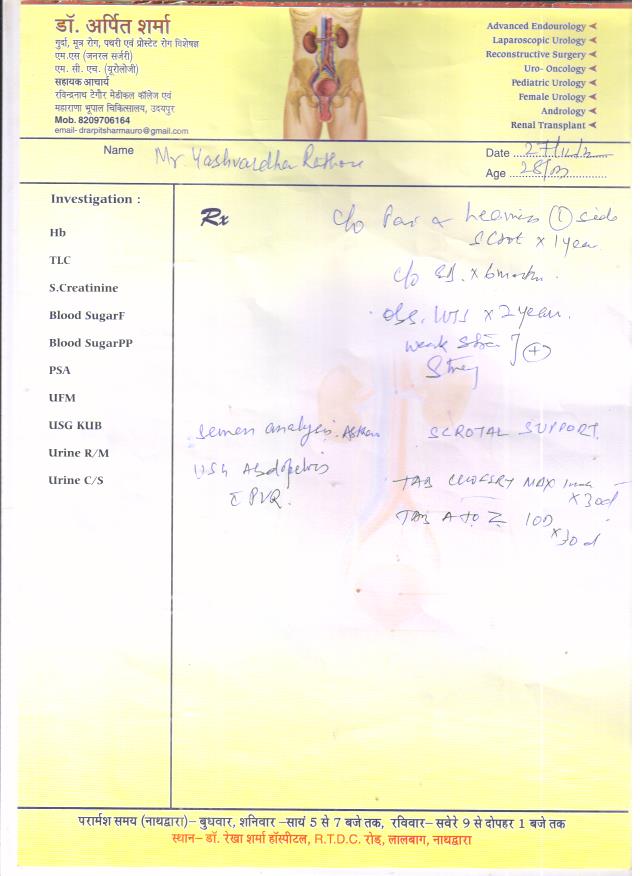 डॉ. अर्पित शर्मा
गुर्दा, मूत्र रोग, पथरी एवं प्रोस्टेट रोग विशेषज्ञ
एम.एस (जनरल सर्जरी)
एम. सी. एच. (यूरोलोजी)
सहायक आचार्य
रविन्द्रनाथ टेगौर मेडीकल कॉलिज एवं
महाराणा भूपाल चिकित्सालय, उदयपुर
Mob. 8209706164
email- drarpitsharmauro@gmail.com
Advanced Endourology
Laparoscopic Urology
Reconstructive Surgery
Uro- Oncology
Pediatric Urology
Female Urology
Andrology
Renal Transplant
Name Mr. Yashvardhan Rathore
Date 27/11/2
Age 28/
Investigation :
Hb
TLC
S.Creatinine
Blood SugarF
Blood SugarPP
PSA
UFM
USG KUB
Urine R/M
Urine C/S
Rx
c/o Pain & heaviness side
Scrot x 1 year
c/o x 6 months
x 2 year.
weak
(+)
Semen analysis.
USG Abdopelvis
c PVR.
SCROTAL SUPPORT.
TAB MAX
x 30d
TAB A TO Z 1OD
x 30d
परार्मश समय (नाथद्वारा)– बुधवार, शनिवार –सायं 5 से 7 बजे तक, रविवार– सवेरे 9 से दोपहर 1 बजे तक
स्थान– डॉ. रेखा शर्मा हॉस्पीटल, R.T.D.C. रोड़, लालबाग, नाथद्वारा